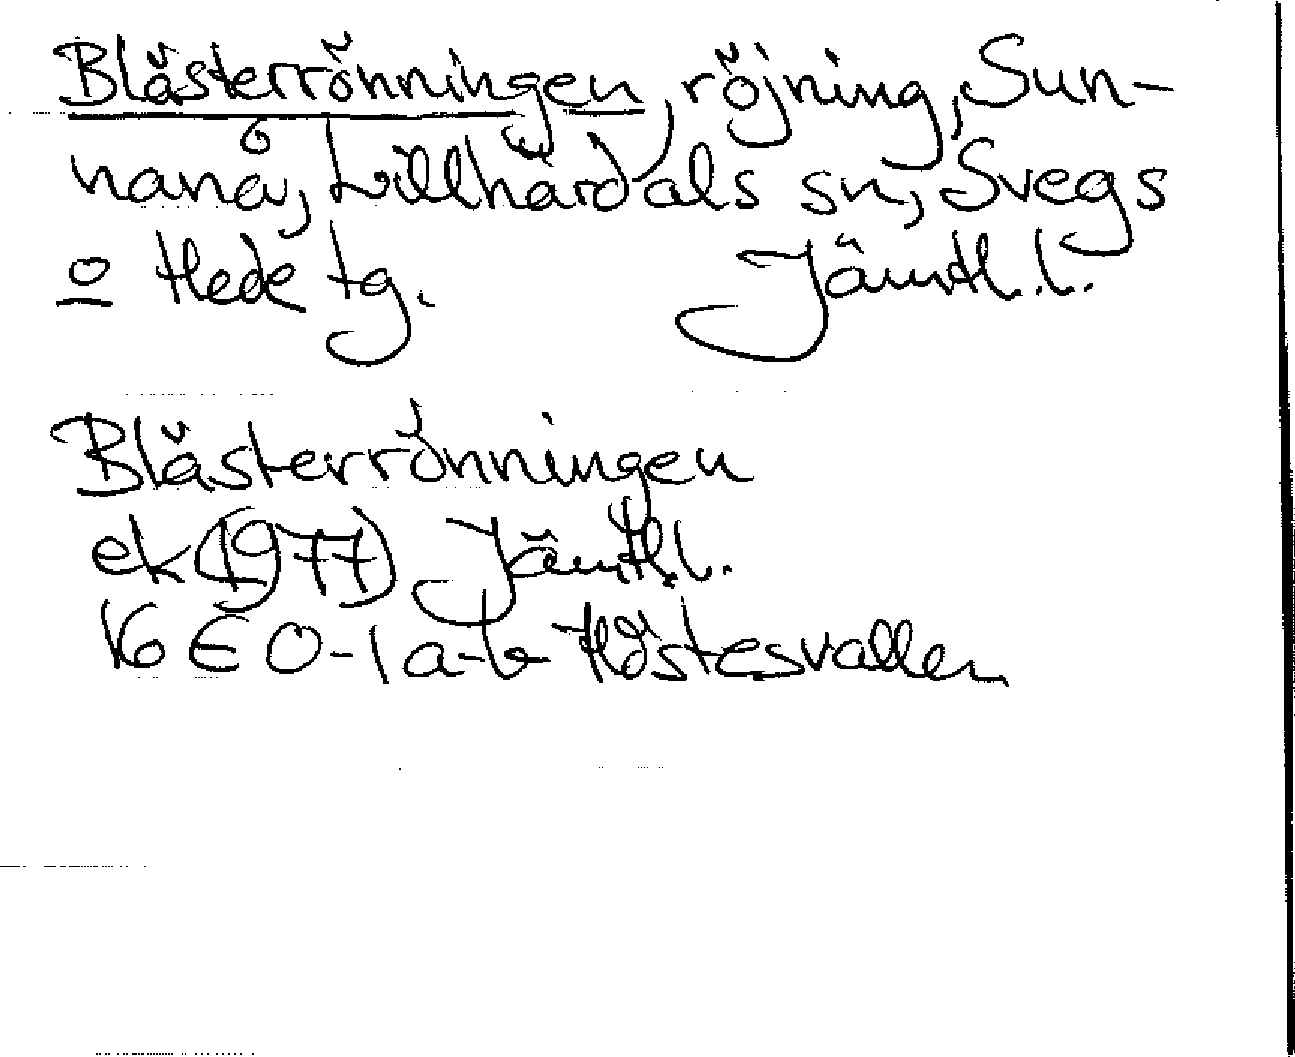 Blästerrönningen, röjning, Sun-
nanå, Lillhärdals sn, Svegs
o Hede tg. Jämtl.l.
Blästerrönningen
ek (1977) Jämtl.l.
16E 0-1 a-b Höstesvallen